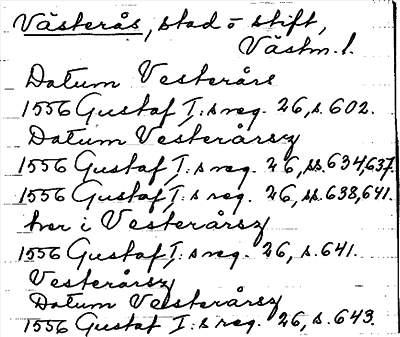 Västerås, stad o stift,
Västm. l.
Datum Vesterårs
1556 Gustaf I:s reg. 26, s. 602.
Datum Vesterårsz
1556 Gustaf I:s reg. 26, ss. 634, 637.
1556 Gustaf I:s reg. 26, ss. 638, 641.
her i Vesterårsz
1556 Gustaf I:s reg. 26, s. 641.
Vesterårsz
Datum Vesterårsz
1556 Gustaf I:s reg. 26, s. 643.